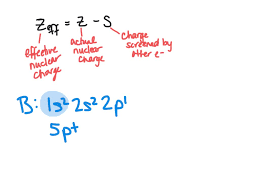 Zeff = Z - S
effective nuclear charge
actual nuclear charge
Charge screened by other e-
B: 1s² 2s² 2p¹
5p⁺